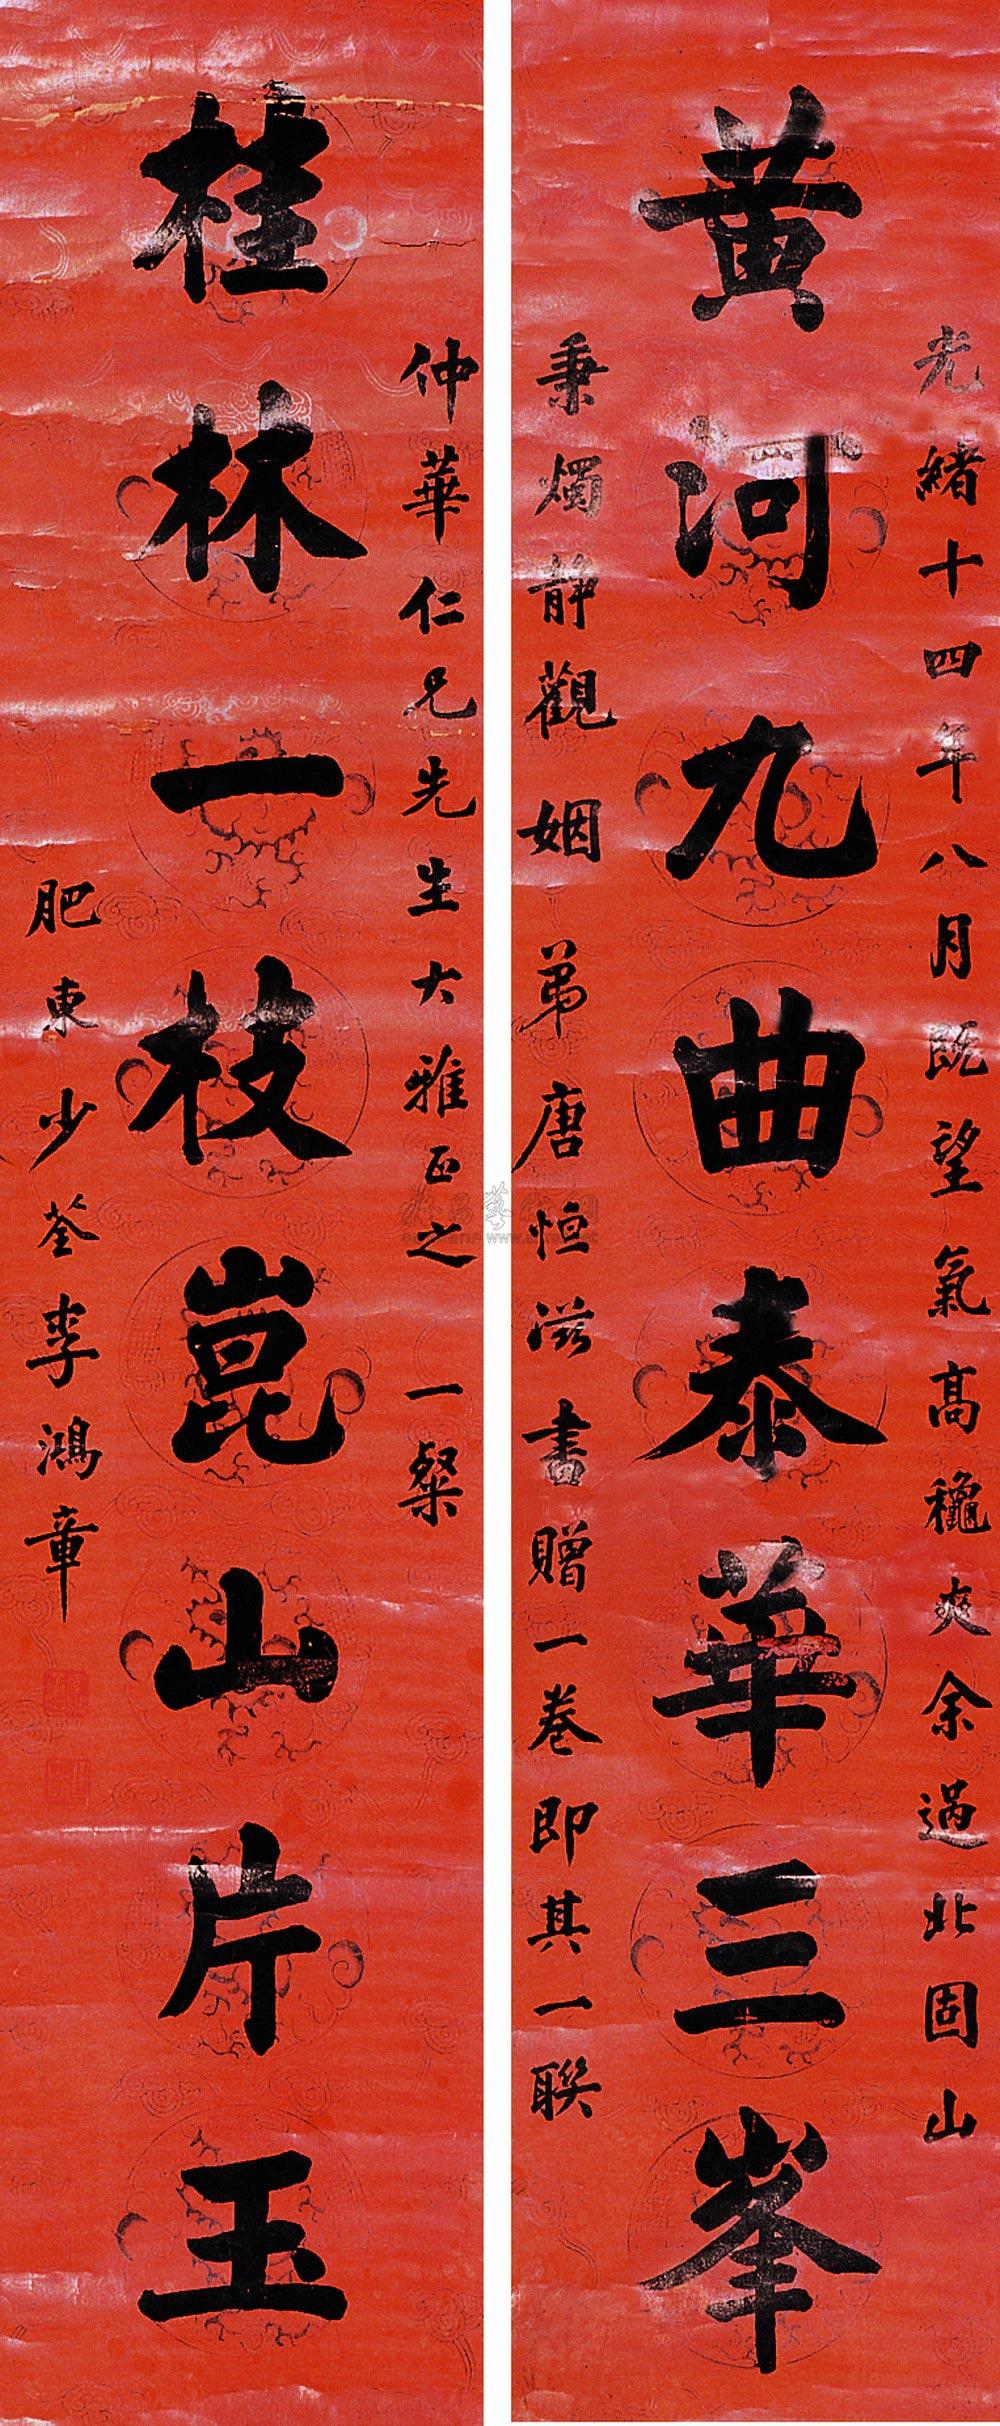 光緒十四年八月既望氣高穐爽余過北固山
黃河九曲泰華三峯
秉燭静觀姻弟唐恒滋書贈一卷即其一聯
仲華仁兄先生大雅正之一粲
桂林一枝崑山片玉
肥東少荃李鴻章